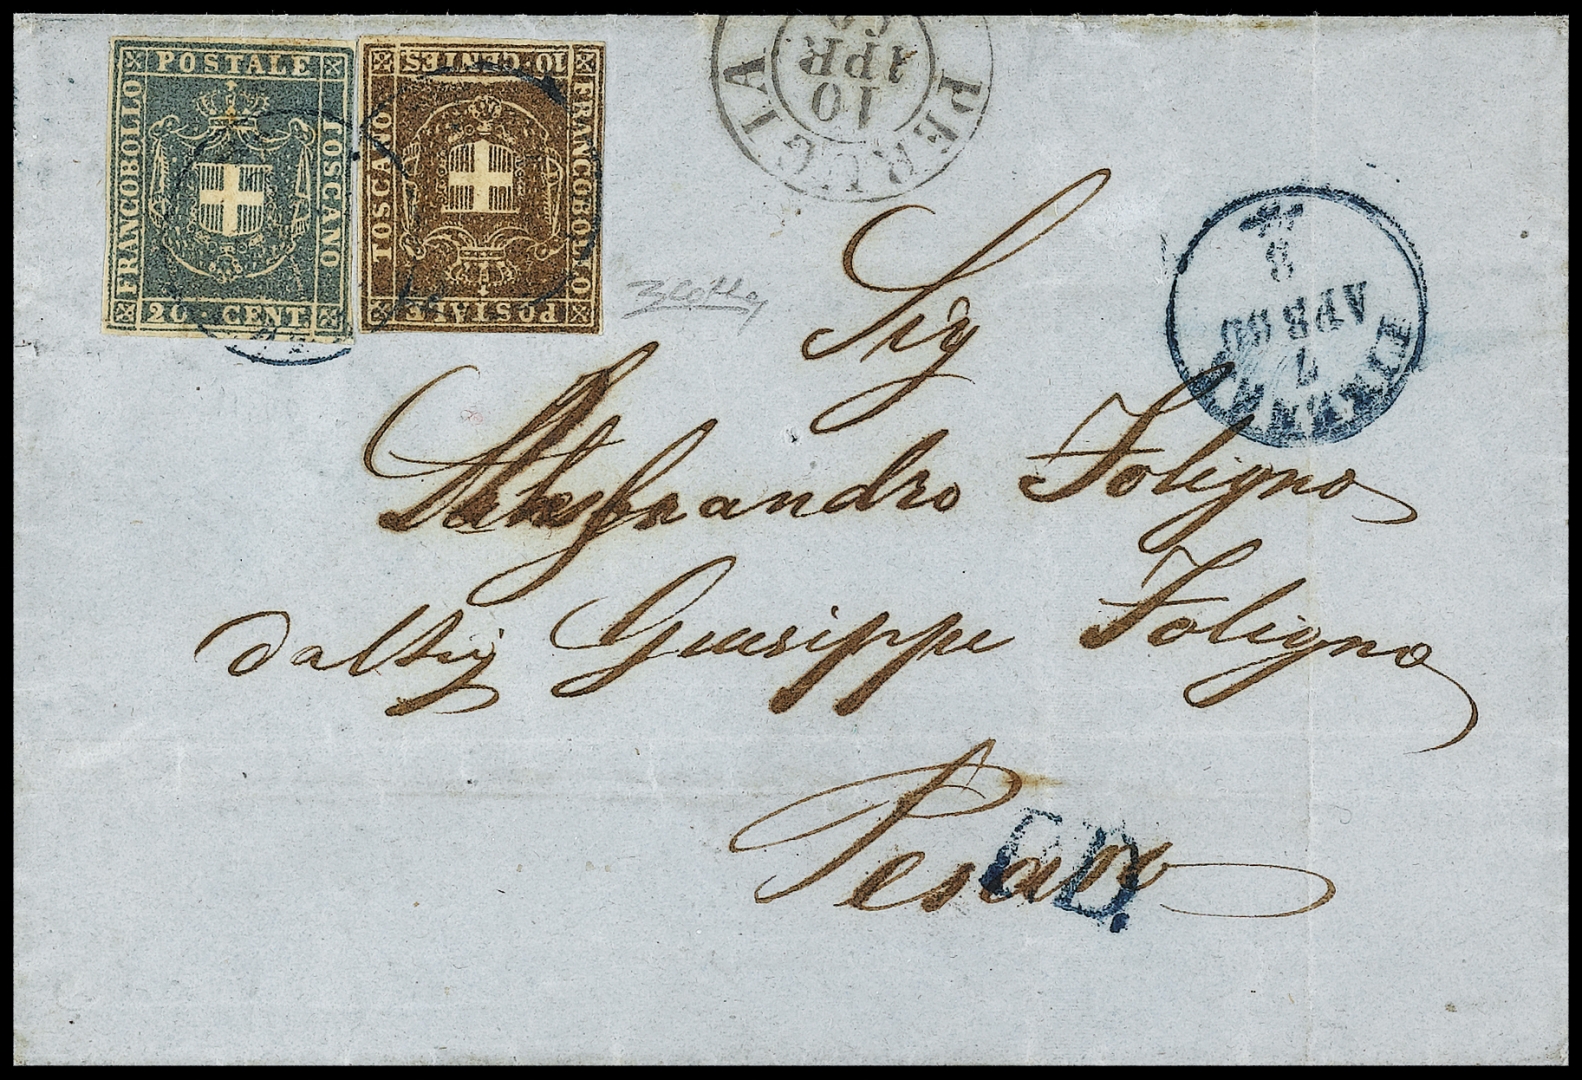 POSTALE
FRANCOBOLLO
TOSCANO
20 · CENT.
10·CENTES
TOSCANO
FRANCOBOLLO
POSTALE
PERUGIA
10
APR
60
FIRENZE
7
APR 60
8
Sig
Alessandro Foligno
dal Sig Giuseppe Foligno
Pesaro
P.D.